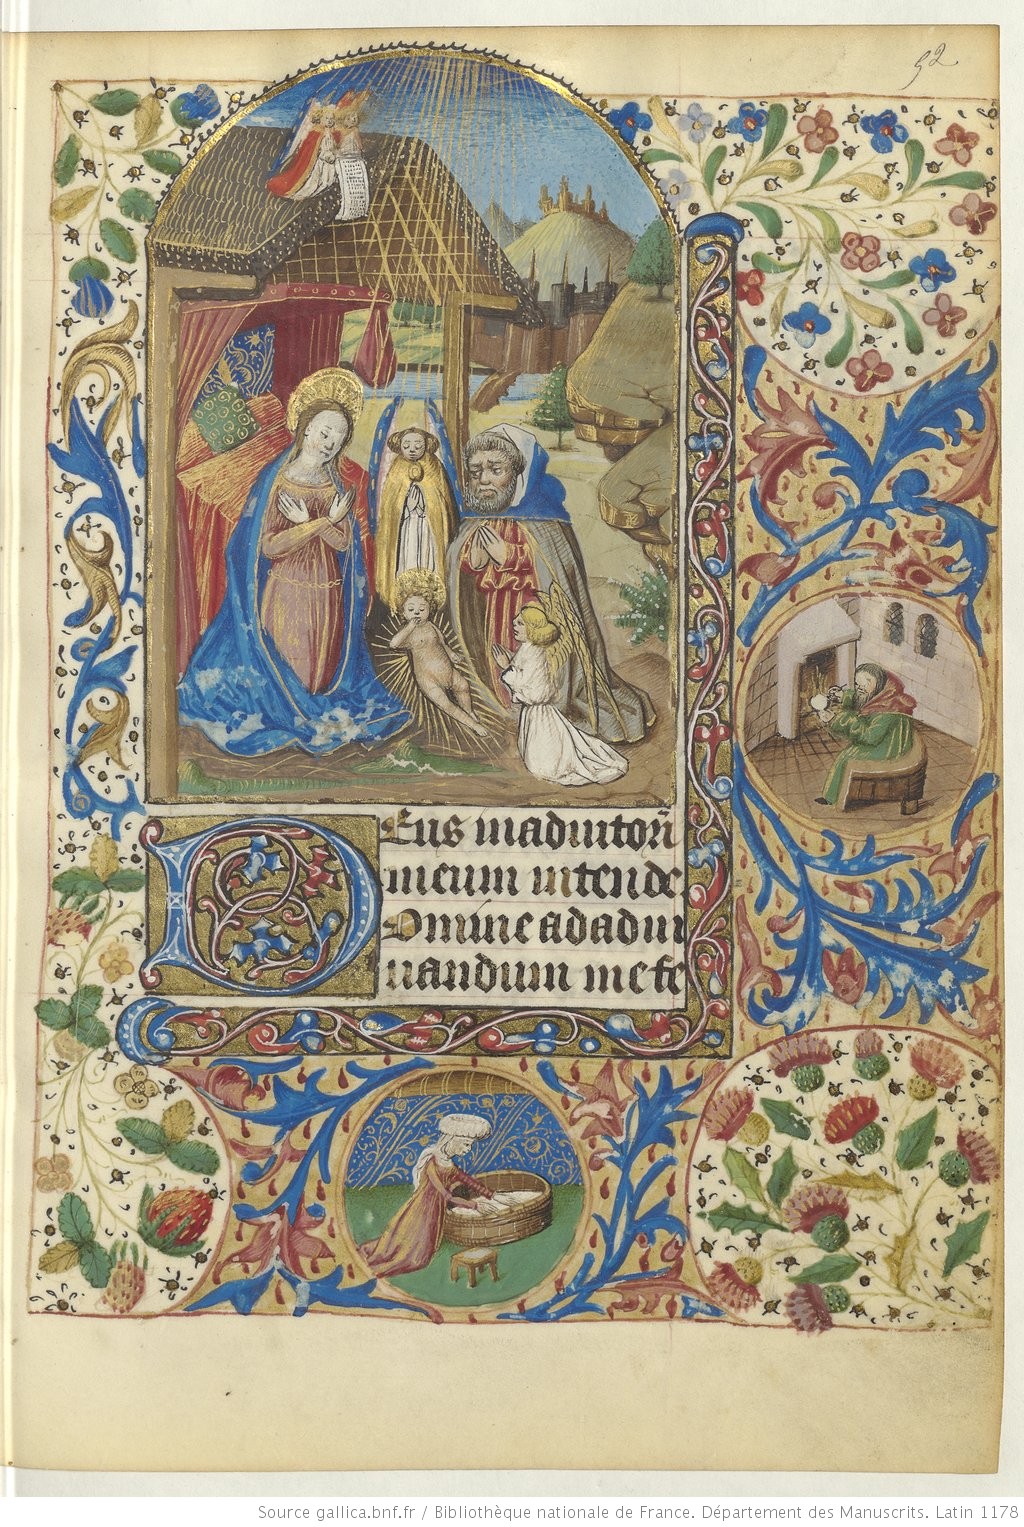 52
Deus in adiutoriū
meum intende
Domine ad adiu
uandum me fe
Source gallica.bnf.fr / Bibliothèque nationale de France. Département des Manuscrits. Latin 1178